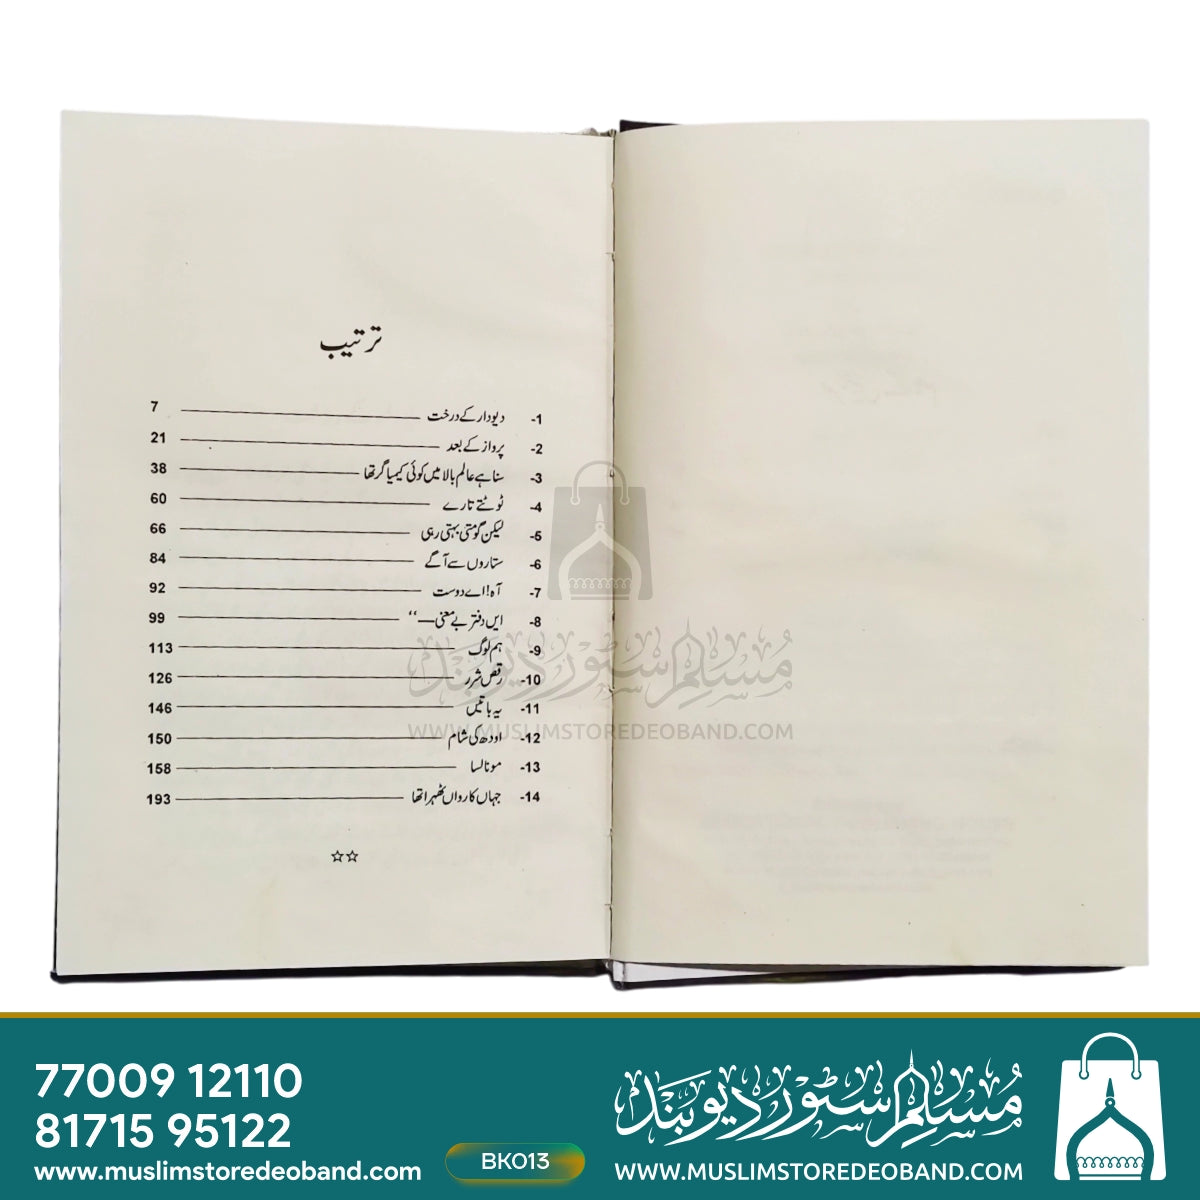 ترتیب
1- دیودار کے درخت 7
2- پرواز کے بعد 21
3- سنا ہے عالم بالا میں کوئی کیمیا گر تھا 38
4- ٹوٹتے تارے 60
5- لیکن گومتی بہتی رہی 66
6- ستاروں سے آگے 84
7- آہ! اے دوست 92
8- ایں دفتر بے معنی —‘‘ 99
9- ہم لوگ 113
10- رقص شرر 126
11- یہ باتیں 146
12- اودھ کی شام 150
13- مونالسا 158
14- جہاں کارواں ٹھہرا تھا 193
☆☆
مسلم سٹور دیوبند
WWW.MUSLIMSTOREDEOBAND.COM
77009 12110
81715 95122
www.muslimstoredeoband.com
BK013
مسلم سٹور دیوبند
WWW.MUSLIMSTOREDEOBAND.COM